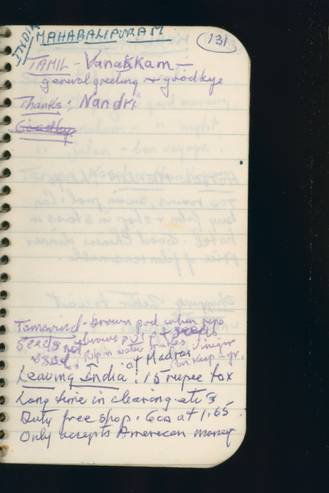 INDIA
MAHABALIPURAM
131
TAMIL - Vanakkam -
general greeting + goodbye
Thanks: Nandri
Goodbye
Tamarind - brown pod when ripe
Seeds
used, pulp in water makes vinegar
can keep 1 yr.
of Madras
Leaving India: 15 rupee tax
Long time in clearing etc 3
Duty free shop. Ecs at 1.65
Only accepts American money